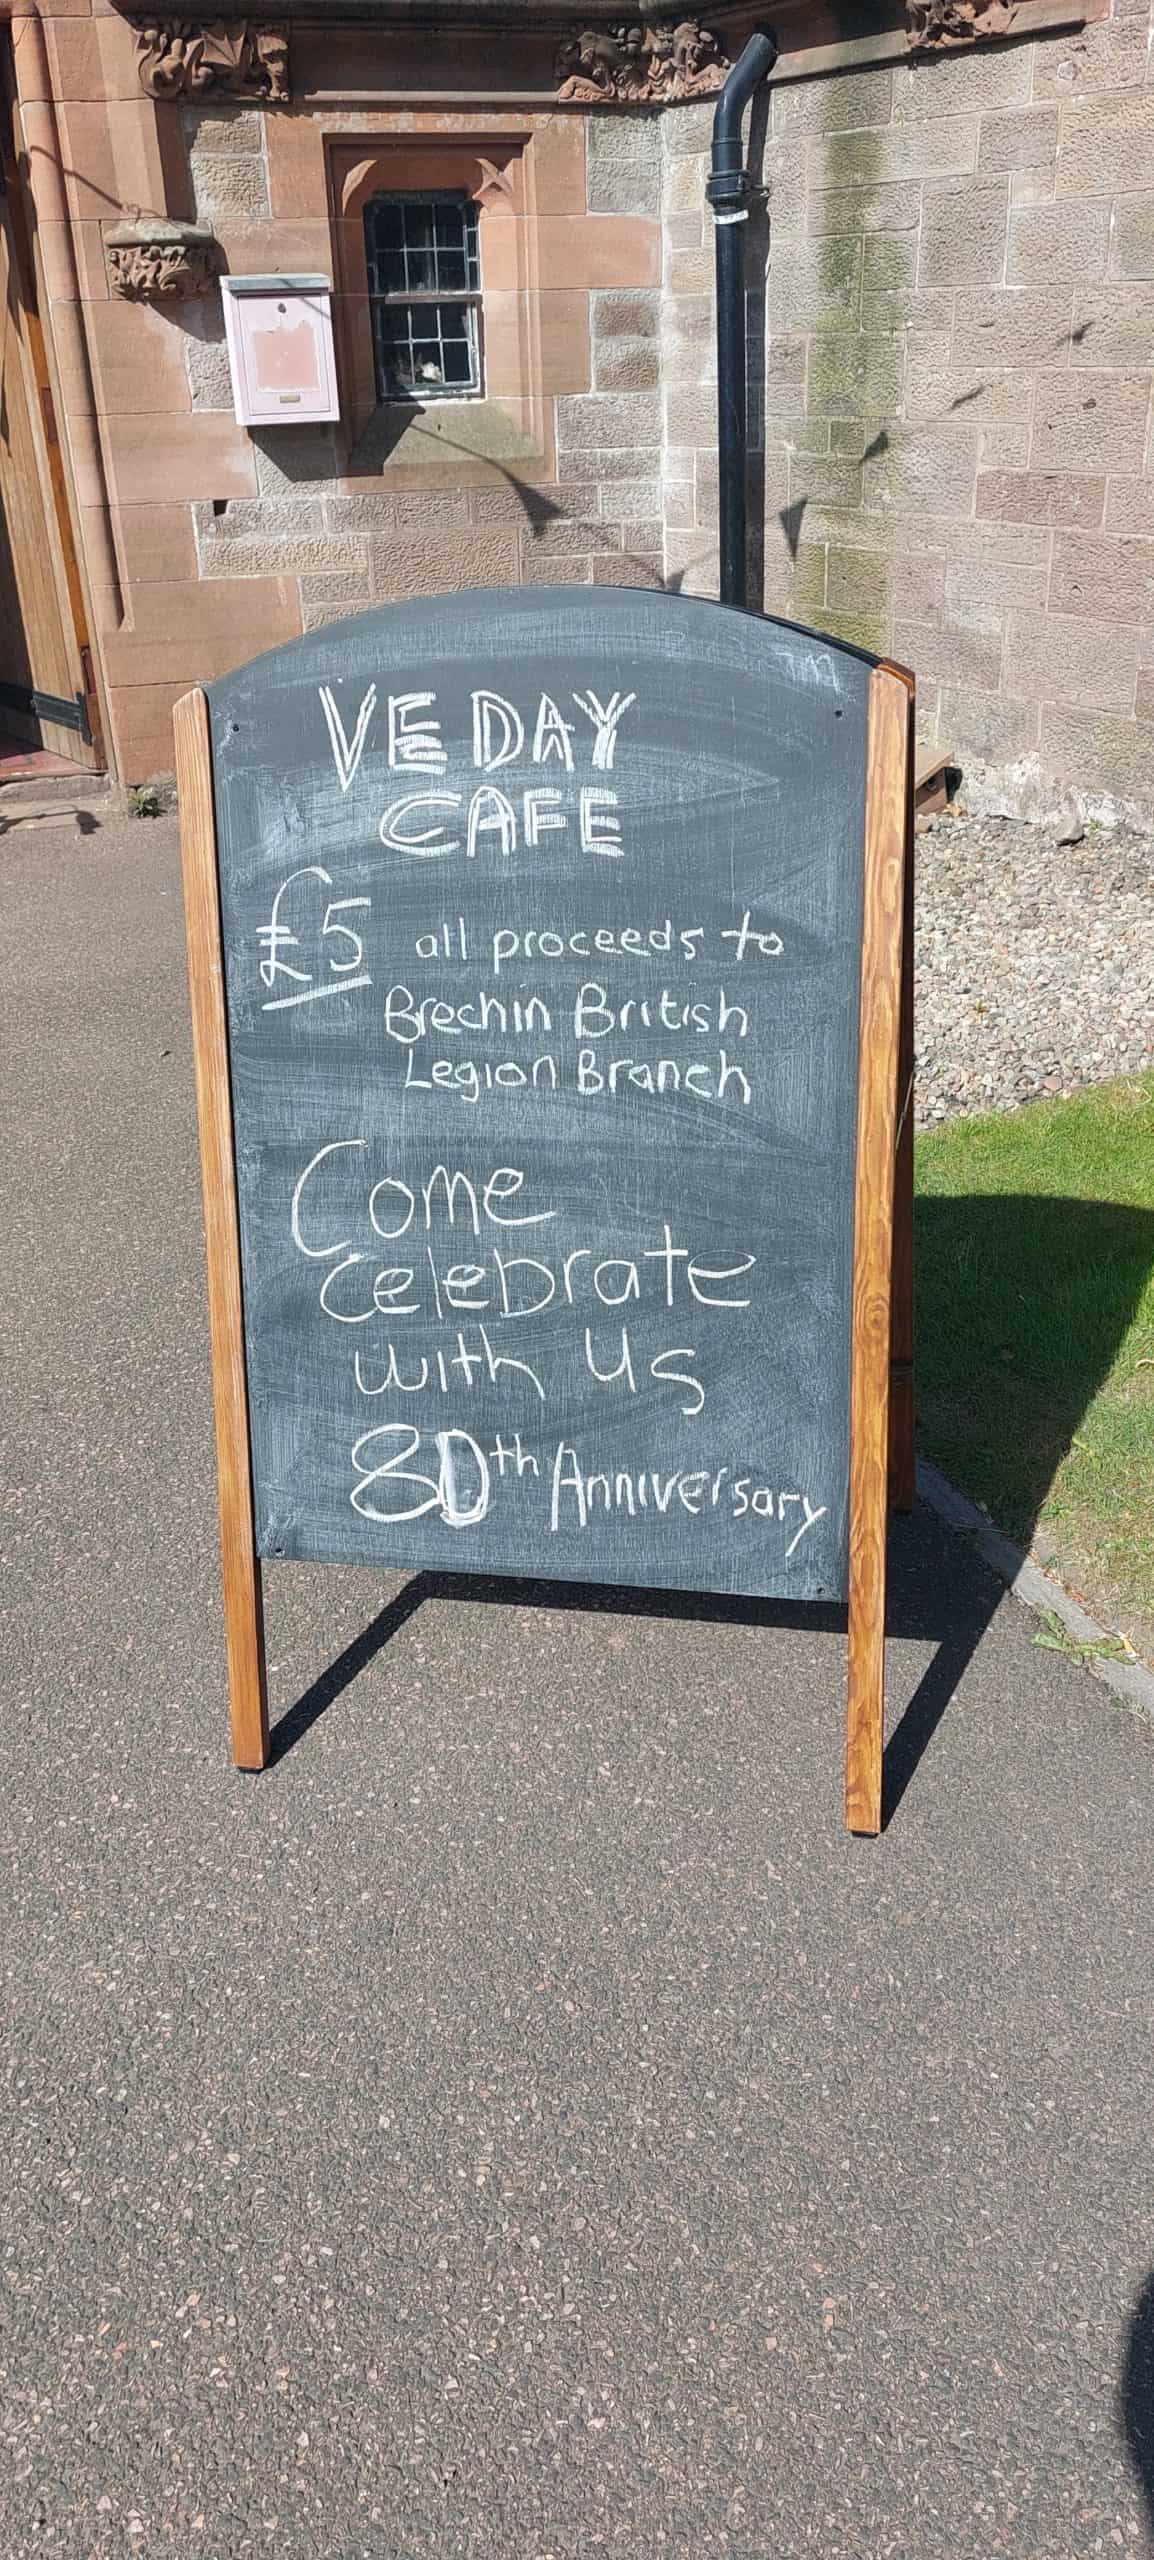 VE DAY
CAFE
£5 all proceeds to
Brechin British
Legion Branch
Come
celebrate
with us
80th Anniversary